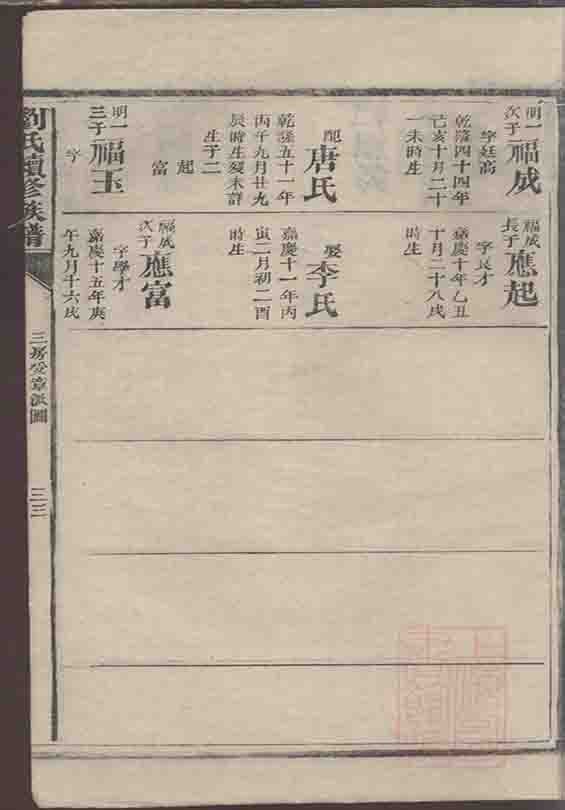 明一
次子
福成
字廷高
乾隆四十四年
己亥十月二十
一未時生
配
唐氏
乾隆五十一年
丙午九月廿九
辰時生歿未詳
生子二
起
富
明一
三子
福玉
字
福成
長子
應起
字良才
嘉慶十年乙丑
十月二十八戌
時生
娶
李氏
嘉慶十一年丙
寅二月初二酉
時生
福成
次子
應富
字學才
嘉慶十五年庚
午九月十六戌
劉氏續修族譜
三房受章派圖
三三